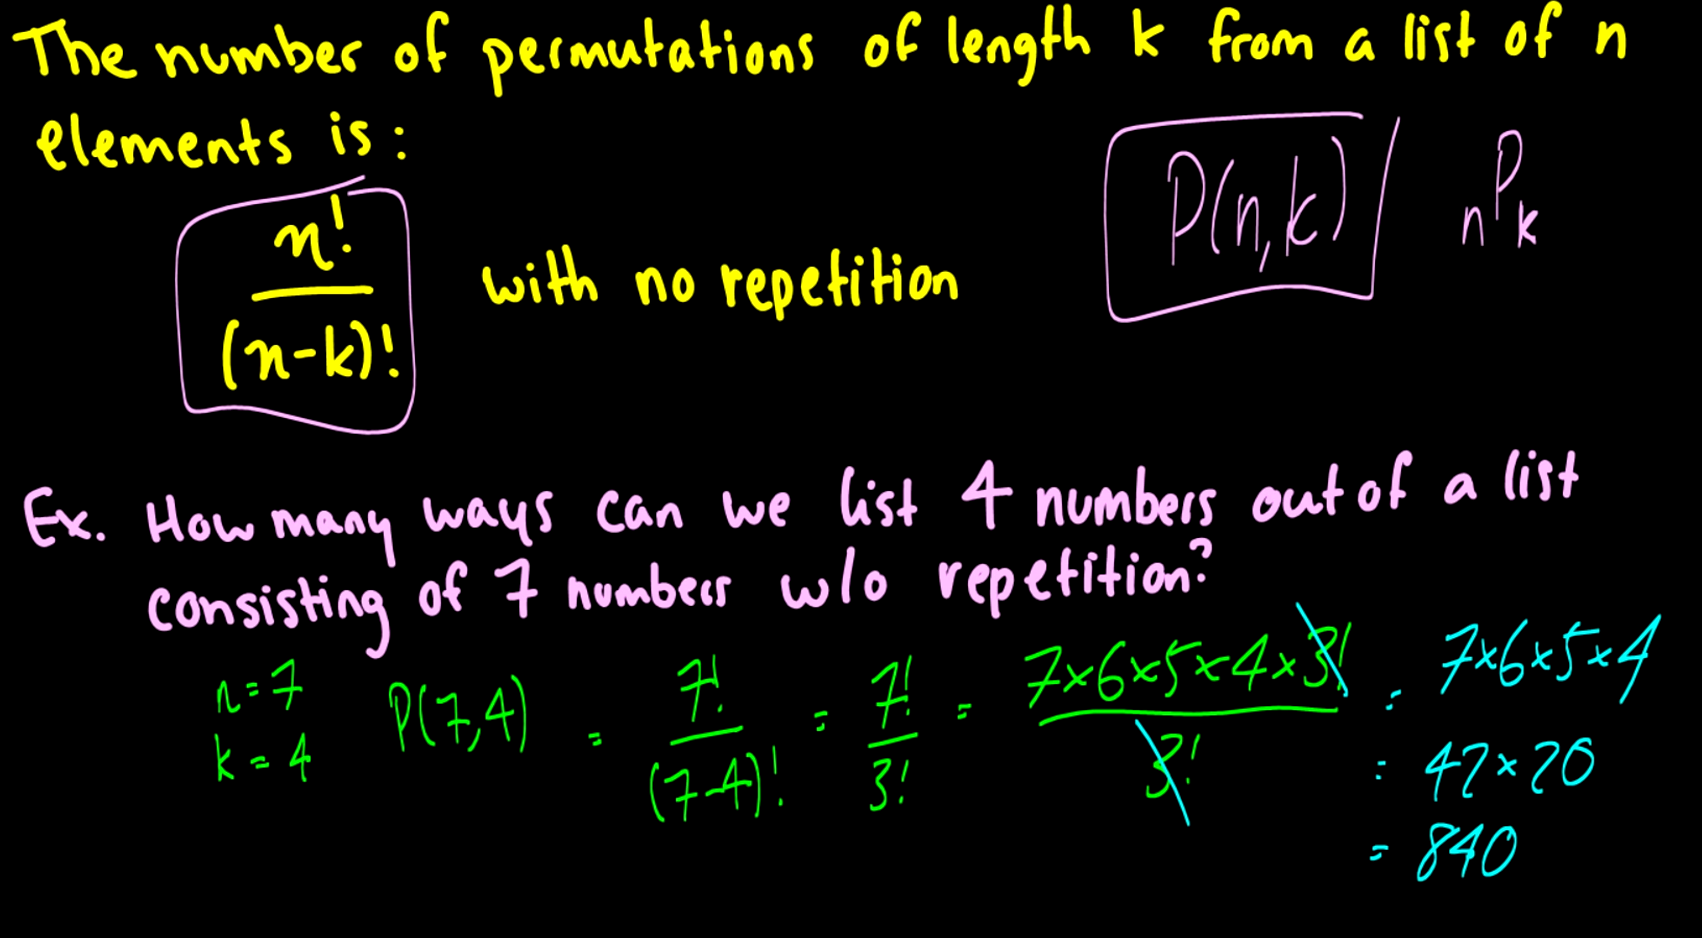 The number of permutations of length k from a list of n
elements is:
P(n,k) / nPk
n!
/(n-k)! with no repetition
Ex. How many ways can we list 4 numbers out of a list
consisting of 7 numbers w/o repetition?
n=7
k=4
P(7,4) = 7!/(7-4)! = 7!/3! = 7×6×5×4×3!/3! = 7×6×5×4
= 42×20
= 840